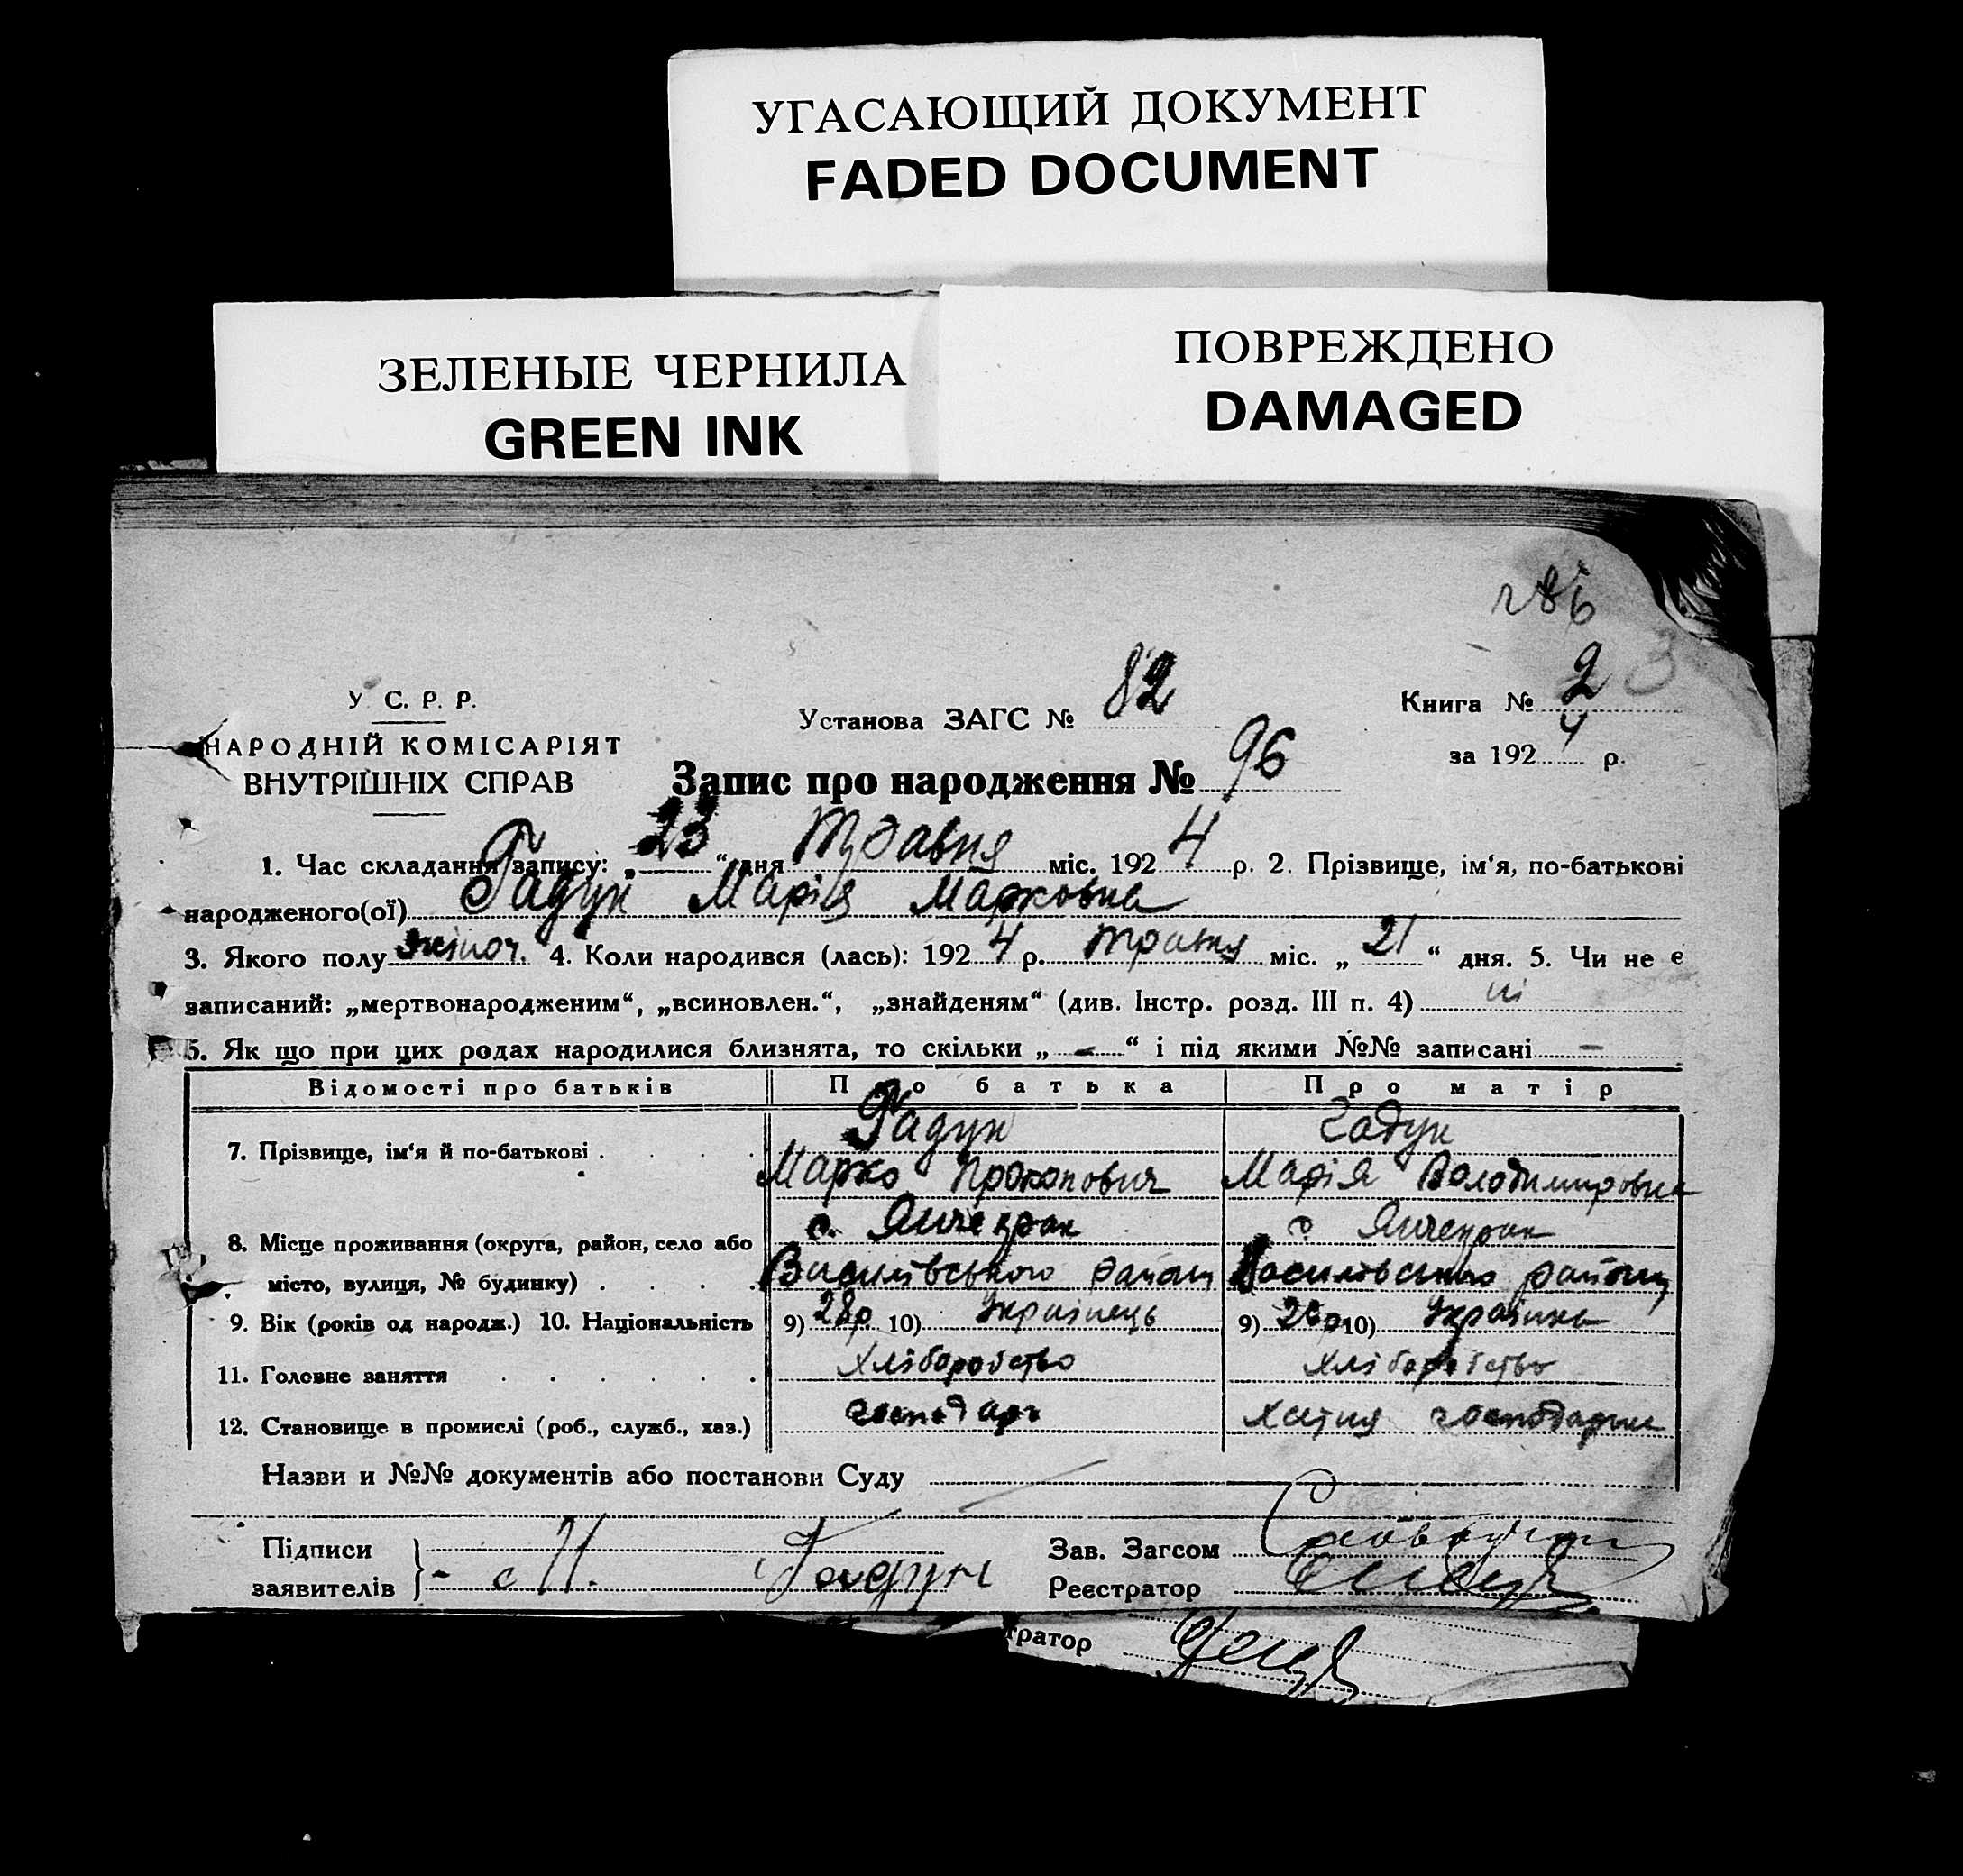 УГАСАЮЩИЙ ДОКУМЕНТ
FADED DOCUMENT
ЗЕЛЕНЫЕ ЧЕРНИЛА
GREEN INK
ПОВРЕЖДЕНО
DAMAGED
286
3
У. С. Р. Р.
НАРОДНІЙ КОМІСАРІЯТ
ВНУТРІШНІХ СПРАВ
Установа ЗАГС № 82
Книга № 2
за 1924 р.
Запис про народження № 96
1. Час складання запису: „23“ дня Травня міс. 1924 р. 2. Прізвище, ім‘я, по-батькові
народженого(ої) Гадун Марія Марковна
3. Якого полу жіноч. 4. Коли народився (лась): 1924 р. травня міс. „21“ дня. 5. Чи не є
записаний: „мертвонародженим“, „всиновлен.“, „знайденям“ (див. Інстр. розд. III п. 4) ні
5. Як що при цих родах народилися близнята, то скільки „-“ і під якими №№ записані -
Відомості про батьків Про батька Про матір
7. Прізвище, ім‘я й по-батькові . . . . Гадун Гадун
Марко Прокопович Марія Володимировна
8. Місце проживання (округа, район, село або с. Янчекрак с Янчекрак
місто, вулиця, № будинку) . . . . Василівського району Василівського району
9. Вік (років од народж.) 10. Національність 9) 28р. 10) Українець 9) 26р 10) Українка
11. Головне заняття . . . . . . Хліборобство хліборобство
12. Становище в промислі (роб., служб., хаз.) господарь хатня господарка
Назви и №№ документів або постанови Суду
Підписи
заявителів } - М. Гадун
Зав. Загсом
Реєстратор
тратор